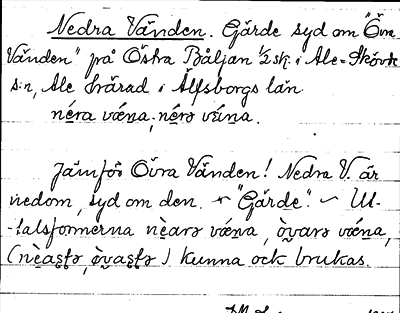 Nedra Vänden. Gärde syd om "Övra
Vänden" på Östra Båljan 1/2 sk. i Ale=Skövde
s:n, Ale härad i Älfsborgs län
néra vǽna, nérə vǽina.
Jämför Övra Vänden! Nedra V. är
nedom, syd om den. "Gärde". ~ Ut-
-talsformerna nèarə vǽna, òvarə vǽna,
kunna ock brukas.